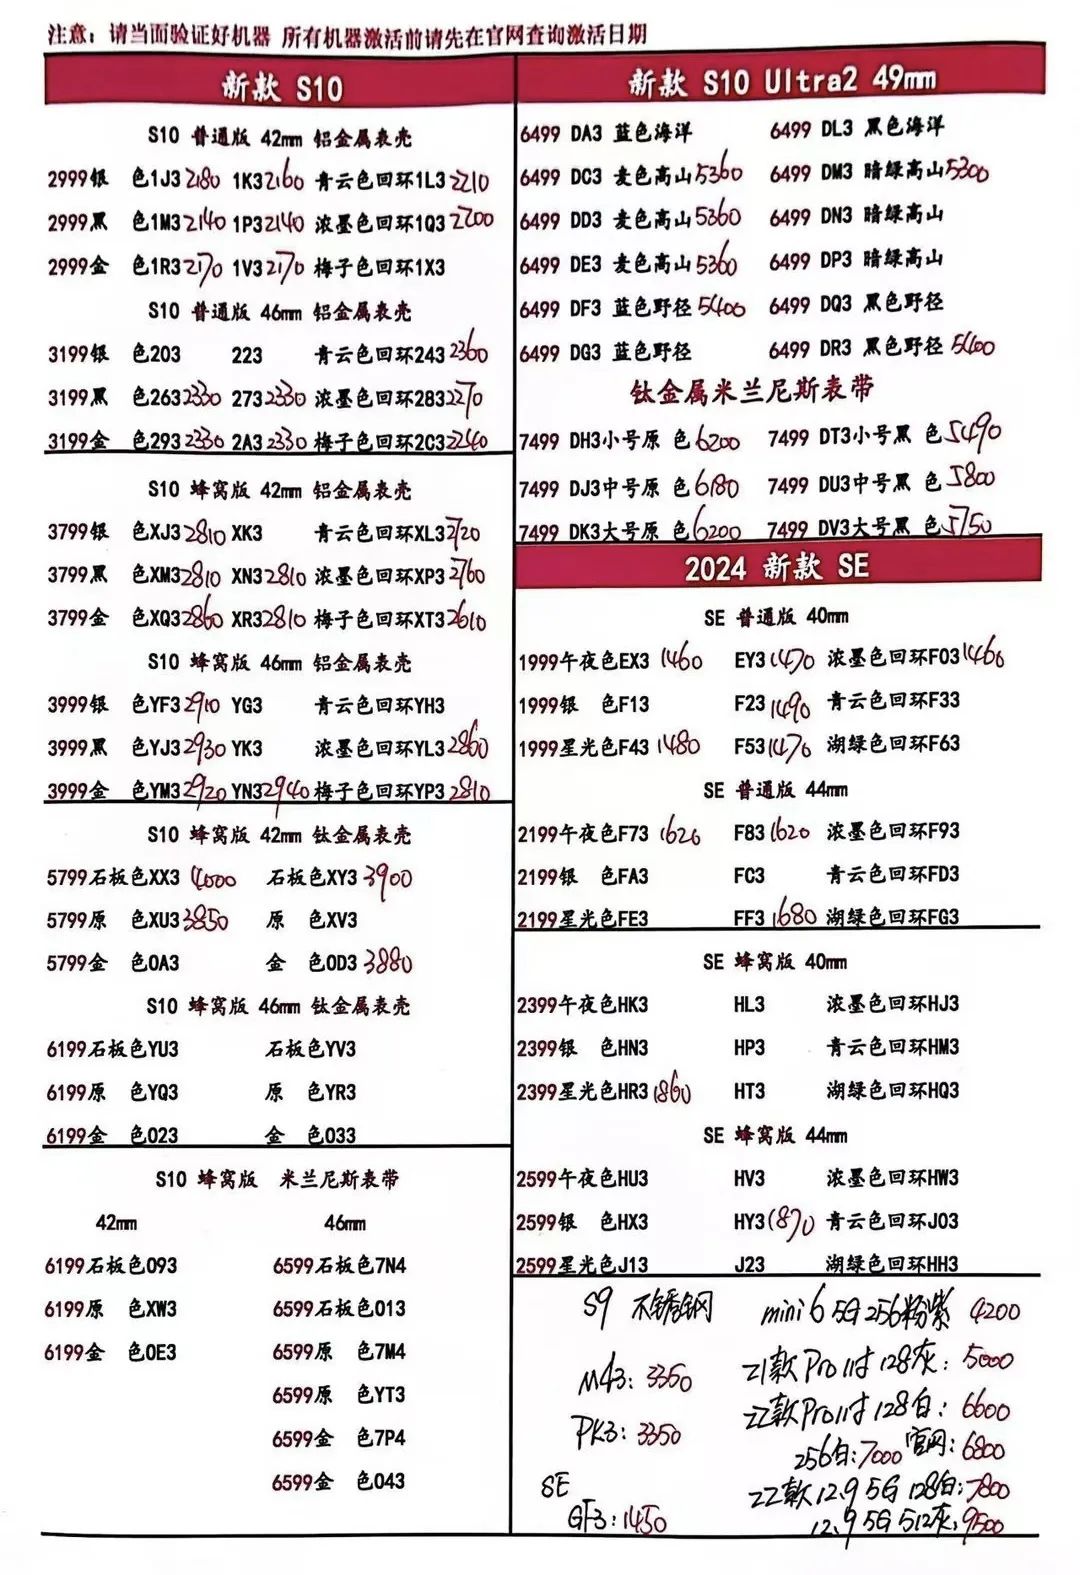 注意：请当面验证好机器 所有机器激活前请先在官网查询激活日期
新款 S10
S10 普通版 42mm 铝金属表壳
2999银 色1J3 2180 1K3 2160 青云色回环1L3 2210
2999黑 色1M3 2140 1P3 2140 浓墨色回环1Q3 2200
2999金 色1R3 2170 1V3 2170 梅子色回环1X3
S10 普通版 46mm 铝金属表壳
3199银 色203 223 青云色回环243 2360
3199黑 色263 2330 273 2330 浓墨色回环283 2270
3199金 色293 2330 2A3 2330 梅子色回环2C3 2240
S10 蜂窝版 42mm 铝金属表壳
3799银 色XJ3 2810 XK3 青云色回环XL3 2720
3799黑 色XM3 2810 XN3 2810 浓墨色回环XP3 2760
3799金 色XQ3 2860 XR3 2810 梅子色回环XT3 2610
S10 蜂窝版 46mm 铝金属表壳
3999银 色YF3 2910 YG3 青云色回环YH3
3999黑 色YJ3 2930 YK3 浓墨色回环YL3 2860
3999金 色YM3 2920 YN3 2940 梅子色回环YP3 2810
S10 蜂窝版 42mm 钛金属表壳
5799石板色XX3 4000 石板色XY3 3900
5799原 色XU3 3850 原 色XV3
5799金 色0A3 金 色0D3 3880
S10 蜂窝版 46mm 钛金属表壳
6199石板色YU3 石板色YV3
6199原 色YQ3 原 色YR3
6199金 色023 金 色033
S10 蜂窝版 米兰尼斯表带
42mm 46mm
6199石板色093 6599石板色7N4
6199原 色XW3 6599石板色013
6199金 色0E3 6599原 色7M4
6599原 色YT3
6599金 色7P4
6599金 色043
新款 S10 Ultra2 49mm
6499 DA3 蓝色海洋 6499 DL3 黑色海洋
6499 DC3 麦色高山 5360 6499 DM3 暗绿高山 5300
6499 DD3 麦色高山 5360 6499 DN3 暗绿高山
6499 DE3 麦色高山 5360 6499 DP3 暗绿高山
6499 DF3 蓝色野径 5400 6499 DQ3 黑色野径
6499 DG3 蓝色野径 6499 DR3 黑色野径 5400
钛金属米兰尼斯表带
7499 DH3小号原 色 6200 7499 DT3小号黑 色 5490
7499 DJ3中号原 色 6180 7499 DU3中号黑 色 5800
7499 DK3大号原 色 6200 7499 DV3大号黑 色 5750
2024 新款 SE
SE 普通版 40mm
1999午夜色EX3 1460 EY3 1470 浓墨色回环F03 1460
1999银 色F13 F23 1490 青云色回环F33
1999星光色F43 1480 F53 1470 湖绿色回环F63
SE 普通版 44mm
2199午夜色F73 1620 F83 1620 浓墨色回环F93
2199银 色FA3 FC3 青云色回环FD3
2199星光色FE3 FF3 1680 湖绿色回环FG3
SE 蜂窝版 40mm
2399午夜色HK3 HL3 浓墨色回环HJ3
2399银 色HN3 HP3 青云色回环HM3
2399星光色HR3 1860 HT3 湖绿色回环HQ3
SE 蜂窝版 44mm
2599午夜色HU3 HV3 浓墨色回环HW3
2599银 色HX3 HY3 1870 青云色回环J03
2599星光色J13 J23 湖绿色回环HH3
S9 不锈钢
M43: 3350
PK3: 3350
SE
GF3: 1450
mini6 5G 256粉紫 4200
21款 Pro 11寸 128灰: 5000
22款 Pro 11寸 128白: 6600
256白: 7000 官网: 6800
22款 12.9 5G 128白: 7800
12.9 5G 512灰: 9500